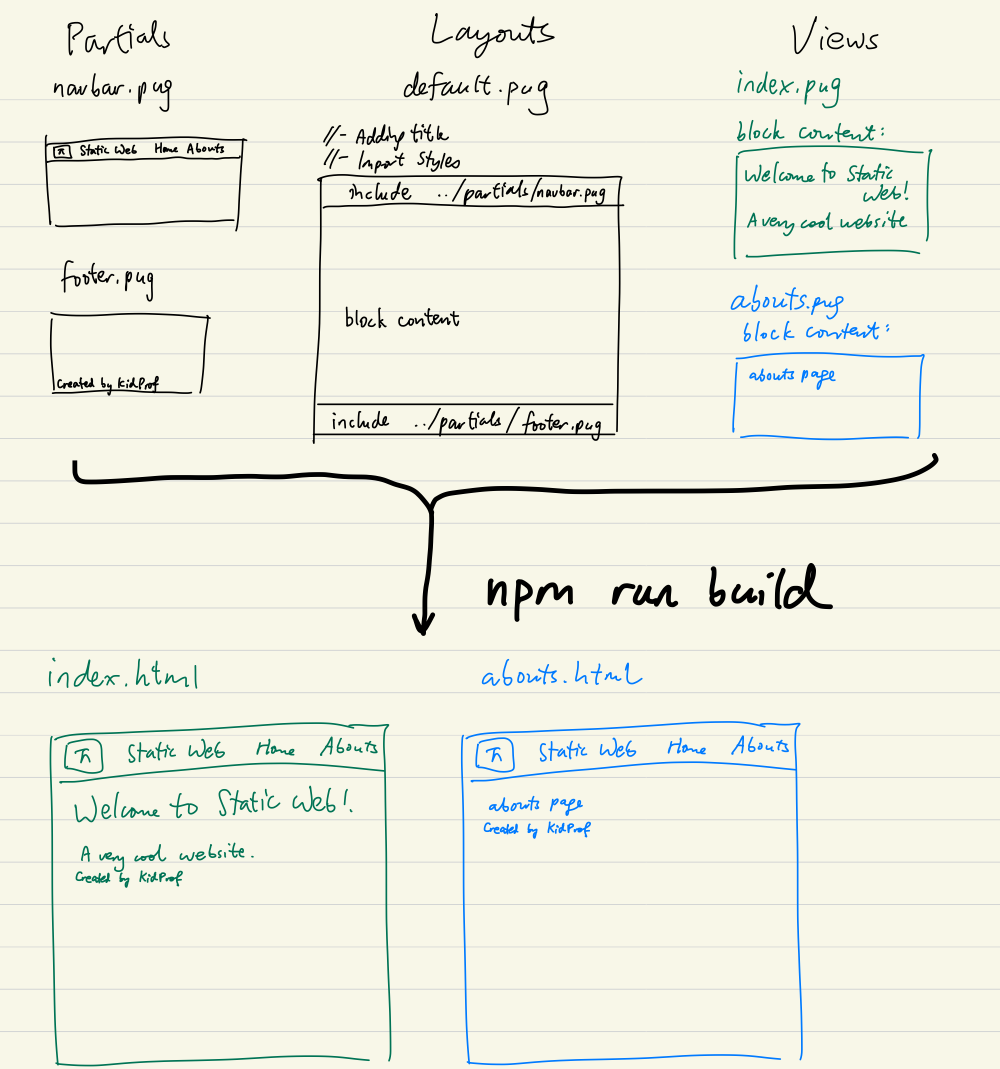 Partials
navbar.pug
π Static Web Home Abouts
footer.pug
Created by KidProf
Layouts
default.pug
//- Adding title
//- Import Styles
include ../partials/navbar.pug
block content
include ../partials/footer.pug
Views
index.pug
block content:
Welcome to Static
Web!
A very cool website
abouts.pug
block content:
abouts page
npm run build
index.html
π Static Web Home Abouts
Welcome to Static Web!
A very cool website.
Created by KidProf
abouts.html
π Static Web Home Abouts
abouts page
Created by KidProf